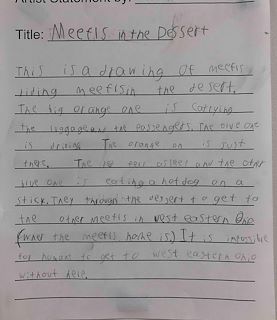 Artist Statement by:
Title: Meefls in the Dessert
This is a drawing of meefls
riding meefls in the desert.
The big orange one is carrying
the luggage and the passengers. The blue one
is driving The orange on is just
there. The fell asleep and the other
blue one is eating a hot dog on a
stick. They through the dessert to get to
the other meefls in west eastern Ohio
(where the meefls home is) It is impossible
for human to get to west eastern ohio
without help.